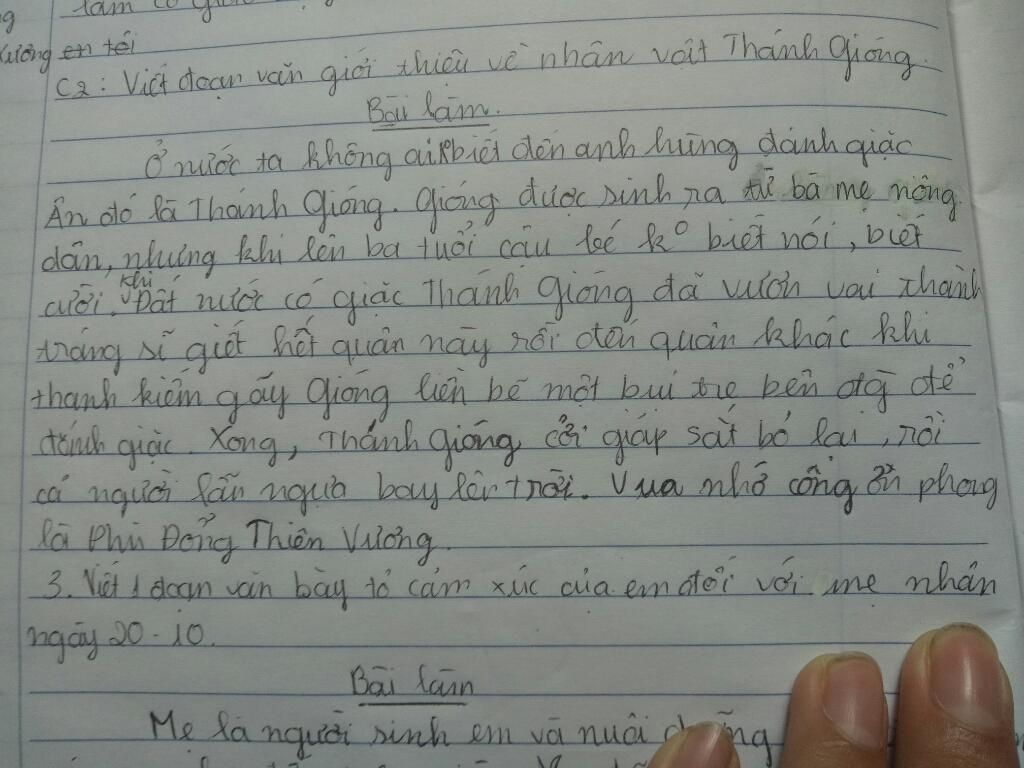 làm có
ng
xương en tới
C2: Viết đoạn văn giới thiệu về nhân vật Thánh Gióng.
Bài làm.
Ở nước ta không ai kbiết đến anh hùng đánh giặc
Ân đó là Thánh Gióng. Gióng được sinh ra từ bà mẹ nông
dân, nhưng khi lên ba tuổi cậu bé k° biết nói, biết
cười. khi Đất nước có giặc Thánh Gióng đã vươn vai thành
tráng sĩ giết hết quân này rồi đến quân khác khi
thanh kiếm gãy Gióng liền bẻ một bụi tre bên đg để
đánh giặc. Xong, Thánh Gióng cởi giáp sắt bỏ lại, rồi
cả người lẫn ngựa bay lên trời. Vua nhớ công ơn phong
là Phù Đổng Thiên Vương.
3. Viết 1 đoạn văn bày tỏ cảm xúc của em đối với mẹ nhân
ngày 20-10.
Bài làm
Mẹ là người sinh em và nuôi